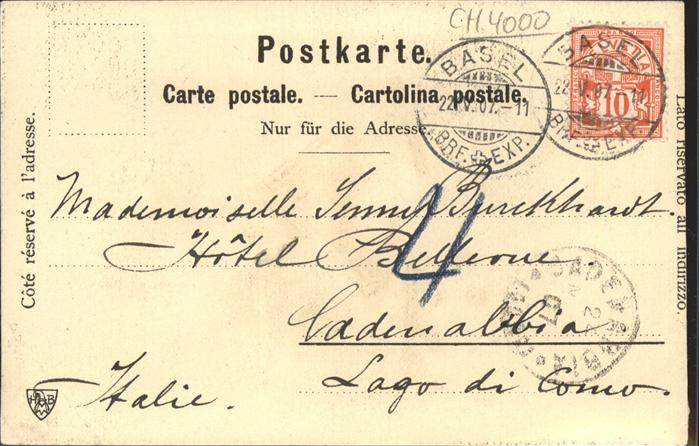 CH 4000
Postkarte.
Carte postale. — Cartolina postale.
Nur für die Adresse
BASEL
22.V.07.–11
BRF.EXP.
BASEL
22.V.07.–11
BRF.EXP.
10
Côté réservé à l'adresse.
Lato riservato all indirizzo.
Mademoiselle Jenny Burckhardt.
Hôtel Bellevue
4
Cadenabbia
Lago di Como.
Italie.